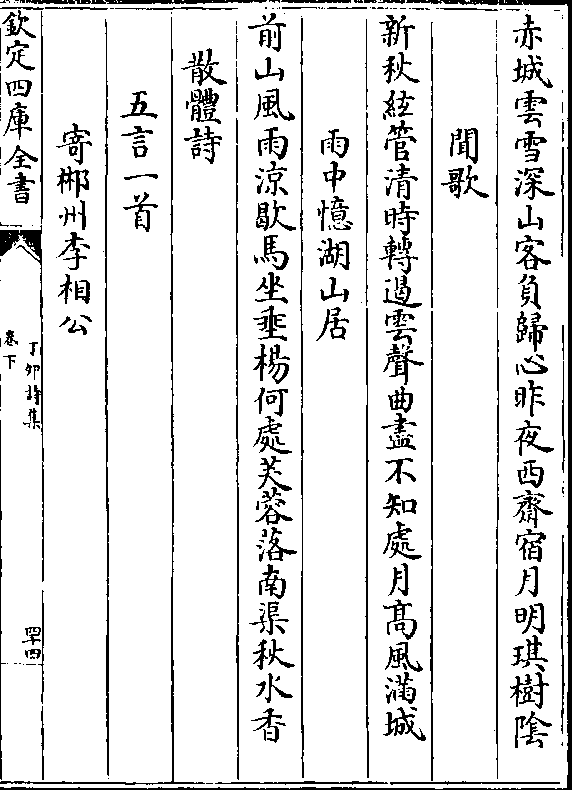 赤城雲雪深山客負歸心昨夜西齋宿月明琪樹陰
聞歌
新秋絃管清時轉遏雲聲曲盡不知處月髙風滿城
雨中憶湖山居
前山風雨涼歇馬坐垂楊何處芙蓉落南渠秋水香
散體詩
五言一首
寄郴州李相公
欽定四庫全書
丁卯詩集
卷下
罕四